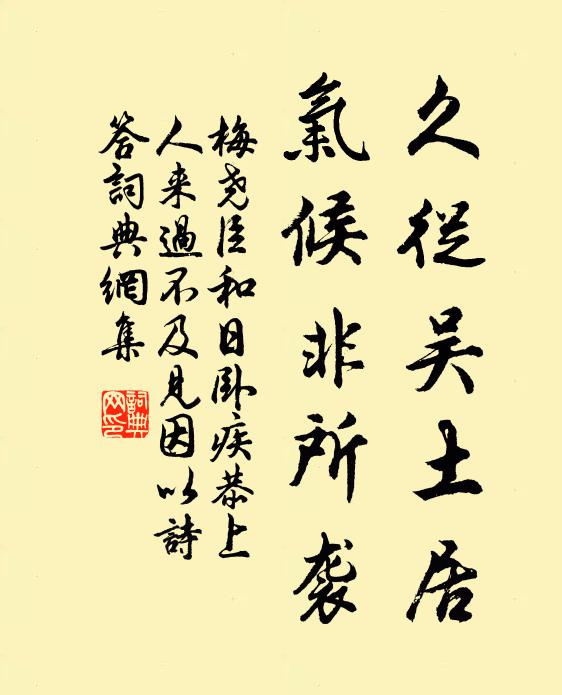 久從吴土居
氣候非所袭
梅尧臣和日卧疾恭上
人来過不及見因以詩
答詞典網集
詞典網印